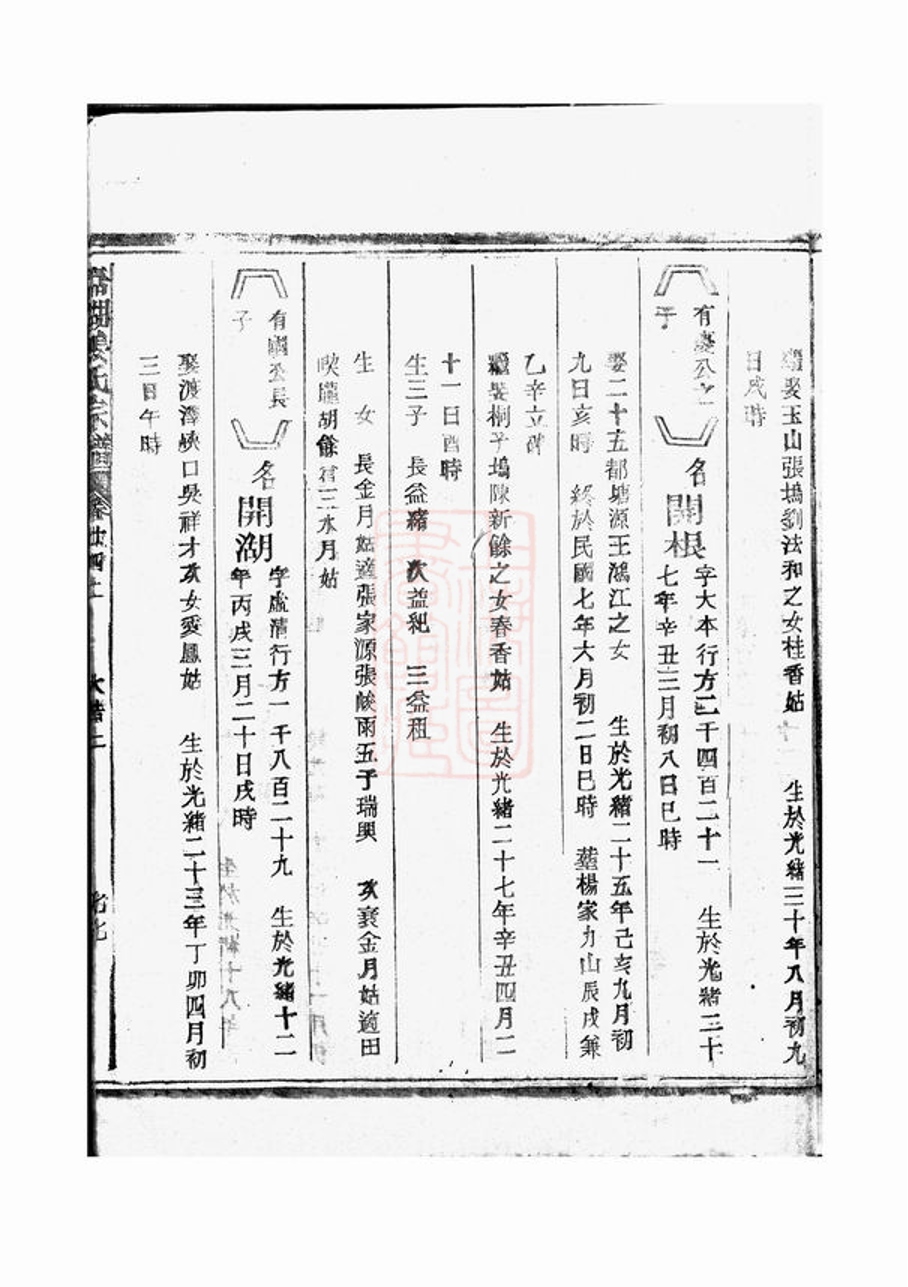 繼娶玉山張塢劉法和之女桂香姑 生於光緒三十年八月初九
日戌時
有慶公之
子
名開根
字大本行方二千四百二十一 生於光緒二十
七年辛丑三月初八日巳時
娶二十五都塘源王鴻江之女 生於光緒二十五年己亥九月初
九日亥時 終於民國七年六月初二日巳時 塟楊家力山辰戌兼
乙辛立碑
繼娶桐子塢陳新餘之女春香姑 生於光緒二十七年辛丑四月二
十一日酉時
生三子 長益緒 次益紀 三益租
生 女 長金月姑適張家源張峻雨五子瑞興 次 金月姑適田
隴胡餘 三水月姑
有國公長
子
名開湖
字 清行方一千八百二十九 生於光緒十二
年丙戌三月二十日戌時
娶渡潭峽口吳祥才次女愛鳳姑 生於光緒二十三年丁卯四月初
三日午時
氏宗譜 卷廿四上